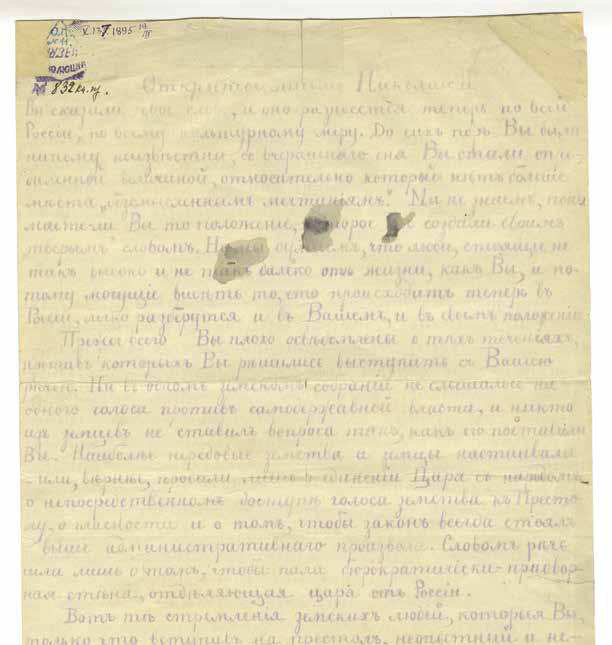 V 137 1895 19/IV
832 кн.
Открытое письмо Николаю II
Вы сказали свое слово, и оно разнесется теперь по всей
Россіи, по всему культурному міру. До сихъ поръ Вы были
никому неизвѣстны, со вчерашняго дня Вы стали опре-
дѣленной величиной, относительно которой нѣтъ больше
мѣста „безсмысленнымъ мечтаніямъ“. Мы не знаемъ, пони
маете ли Вы то положеніе, которое создали своимъ
словомъ. Но мы думаемъ, что люди, стоящіе не
такъ высоко и не такъ далеко отъ жизни, какъ Вы, и по-
тому могущіе видѣть то, что происходитъ теперь въ
Россіи, легко разберутся и въ Вашемъ, и въ своемъ положеніи
Прежде всего Вы плохо освѣдомлены о тѣхъ теченіяхъ,
противъ которыхъ Вы рѣшились выступить въ Вашей
рѣчи. Ни въ одномъ земскомъ собраніи не слышалось ни
одного голоса противъ самодержавной власти, и никто
изъ земцевъ не ставилъ вопроса такъ, какъ его поставили
Вы. Наиболѣе передовые земства и земцы настаивали
или, вѣрнѣе, просили лишь о единеніи Царя съ народомъ
о непосредственномъ доступѣ голоса земства къ Престо
лу, о гласности и о томъ, чтобы законъ всегда стоялъ
выше административнаго произвола. Словомъ рѣчь
шла лишь о томъ, чтобы пала бюрократически-придвор
ная стѣна, отдѣляющая царя отъ Россіи.
Вотъ тѣ стремленія земскихъ людей, которыя Вы,
только что вступивъ на престолъ, неопытный и не-